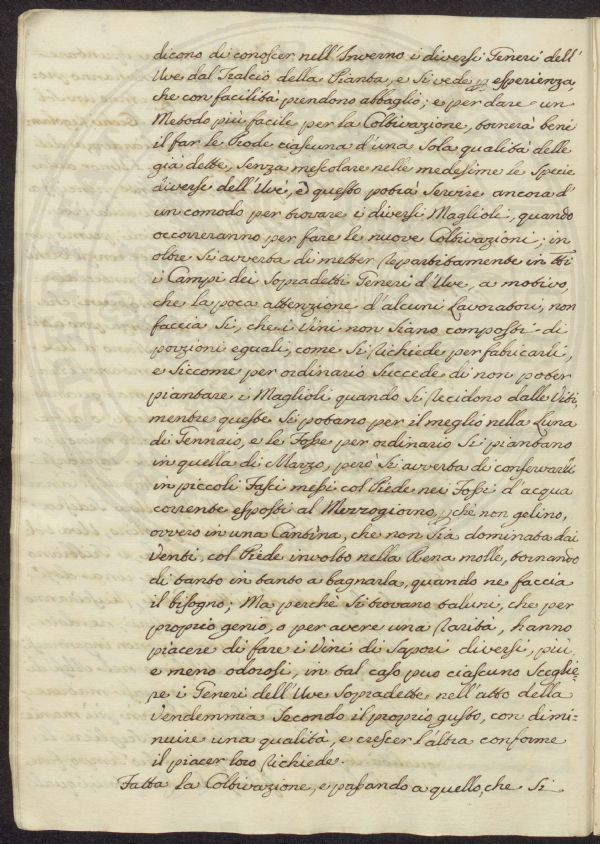 dicono di conoscer nell'Inverno i diversi Generi dell'
Uve dal Tralcio della Pianta, e si vede p esperienza,
che con facilità prendono abbaglio; e per dare un
Metodo più facile per la Coltivazione, tornerà bene
il far le Prode ciascuna d'una sola qualità delle
già dette, senza mescolare nelle medesime le Specie
diverse dell'Uve, e questo potrà servire ancora d'
un comodo per trovare i diversi Maglioli, quando
occorreranno per fare le nuove Coltivazioni; in
oltre si avverta di metter repartitamente in tti
i Campi dei sopradetti Generi d'Uve, a motivo,
che la poca attenzione d'alcuni Lavoratori, non
faccia sì, che i Vini non siano composti di
porzioni eguali, come si richiede per fabricarli,
e siccome per ordinario succede di non poter
piantare i Maglioli quando si recidono dalle Viti,
mentre queste si potano per il meglio nella Luna
di Gennaio, e le Fosse per ordinario si piantano
in quella di Marzo, però si avverta di conservarli
in piccoli Fasci messi col Piede nei Fossi d'acqua
corrente esposti al Mezzogiorno, p che non gelino,
ovvero in una Cantina, che non sia dominata dai
Venti, col Piede involto nella Rena molle, tornando
di tanto in tanto a bagnarla, quando ne faccia
il bisogno; Ma perchè si trovano taluni, che per
proprio genio, o per avere una rarità, hanno
piacere di fare i Vini di Sapori diversi, più
e meno odorosi, in tal caso può ciascuno sceglie=
re i Generi dell'Uve sopradette nell'atto della
Vendemmia secondo il proprio gusto, con dimi=
nuire una qualità, e crescer l'altra conforme
il piacer loro richiede.
Fatta la Coltivazione, e passando a quello, che si